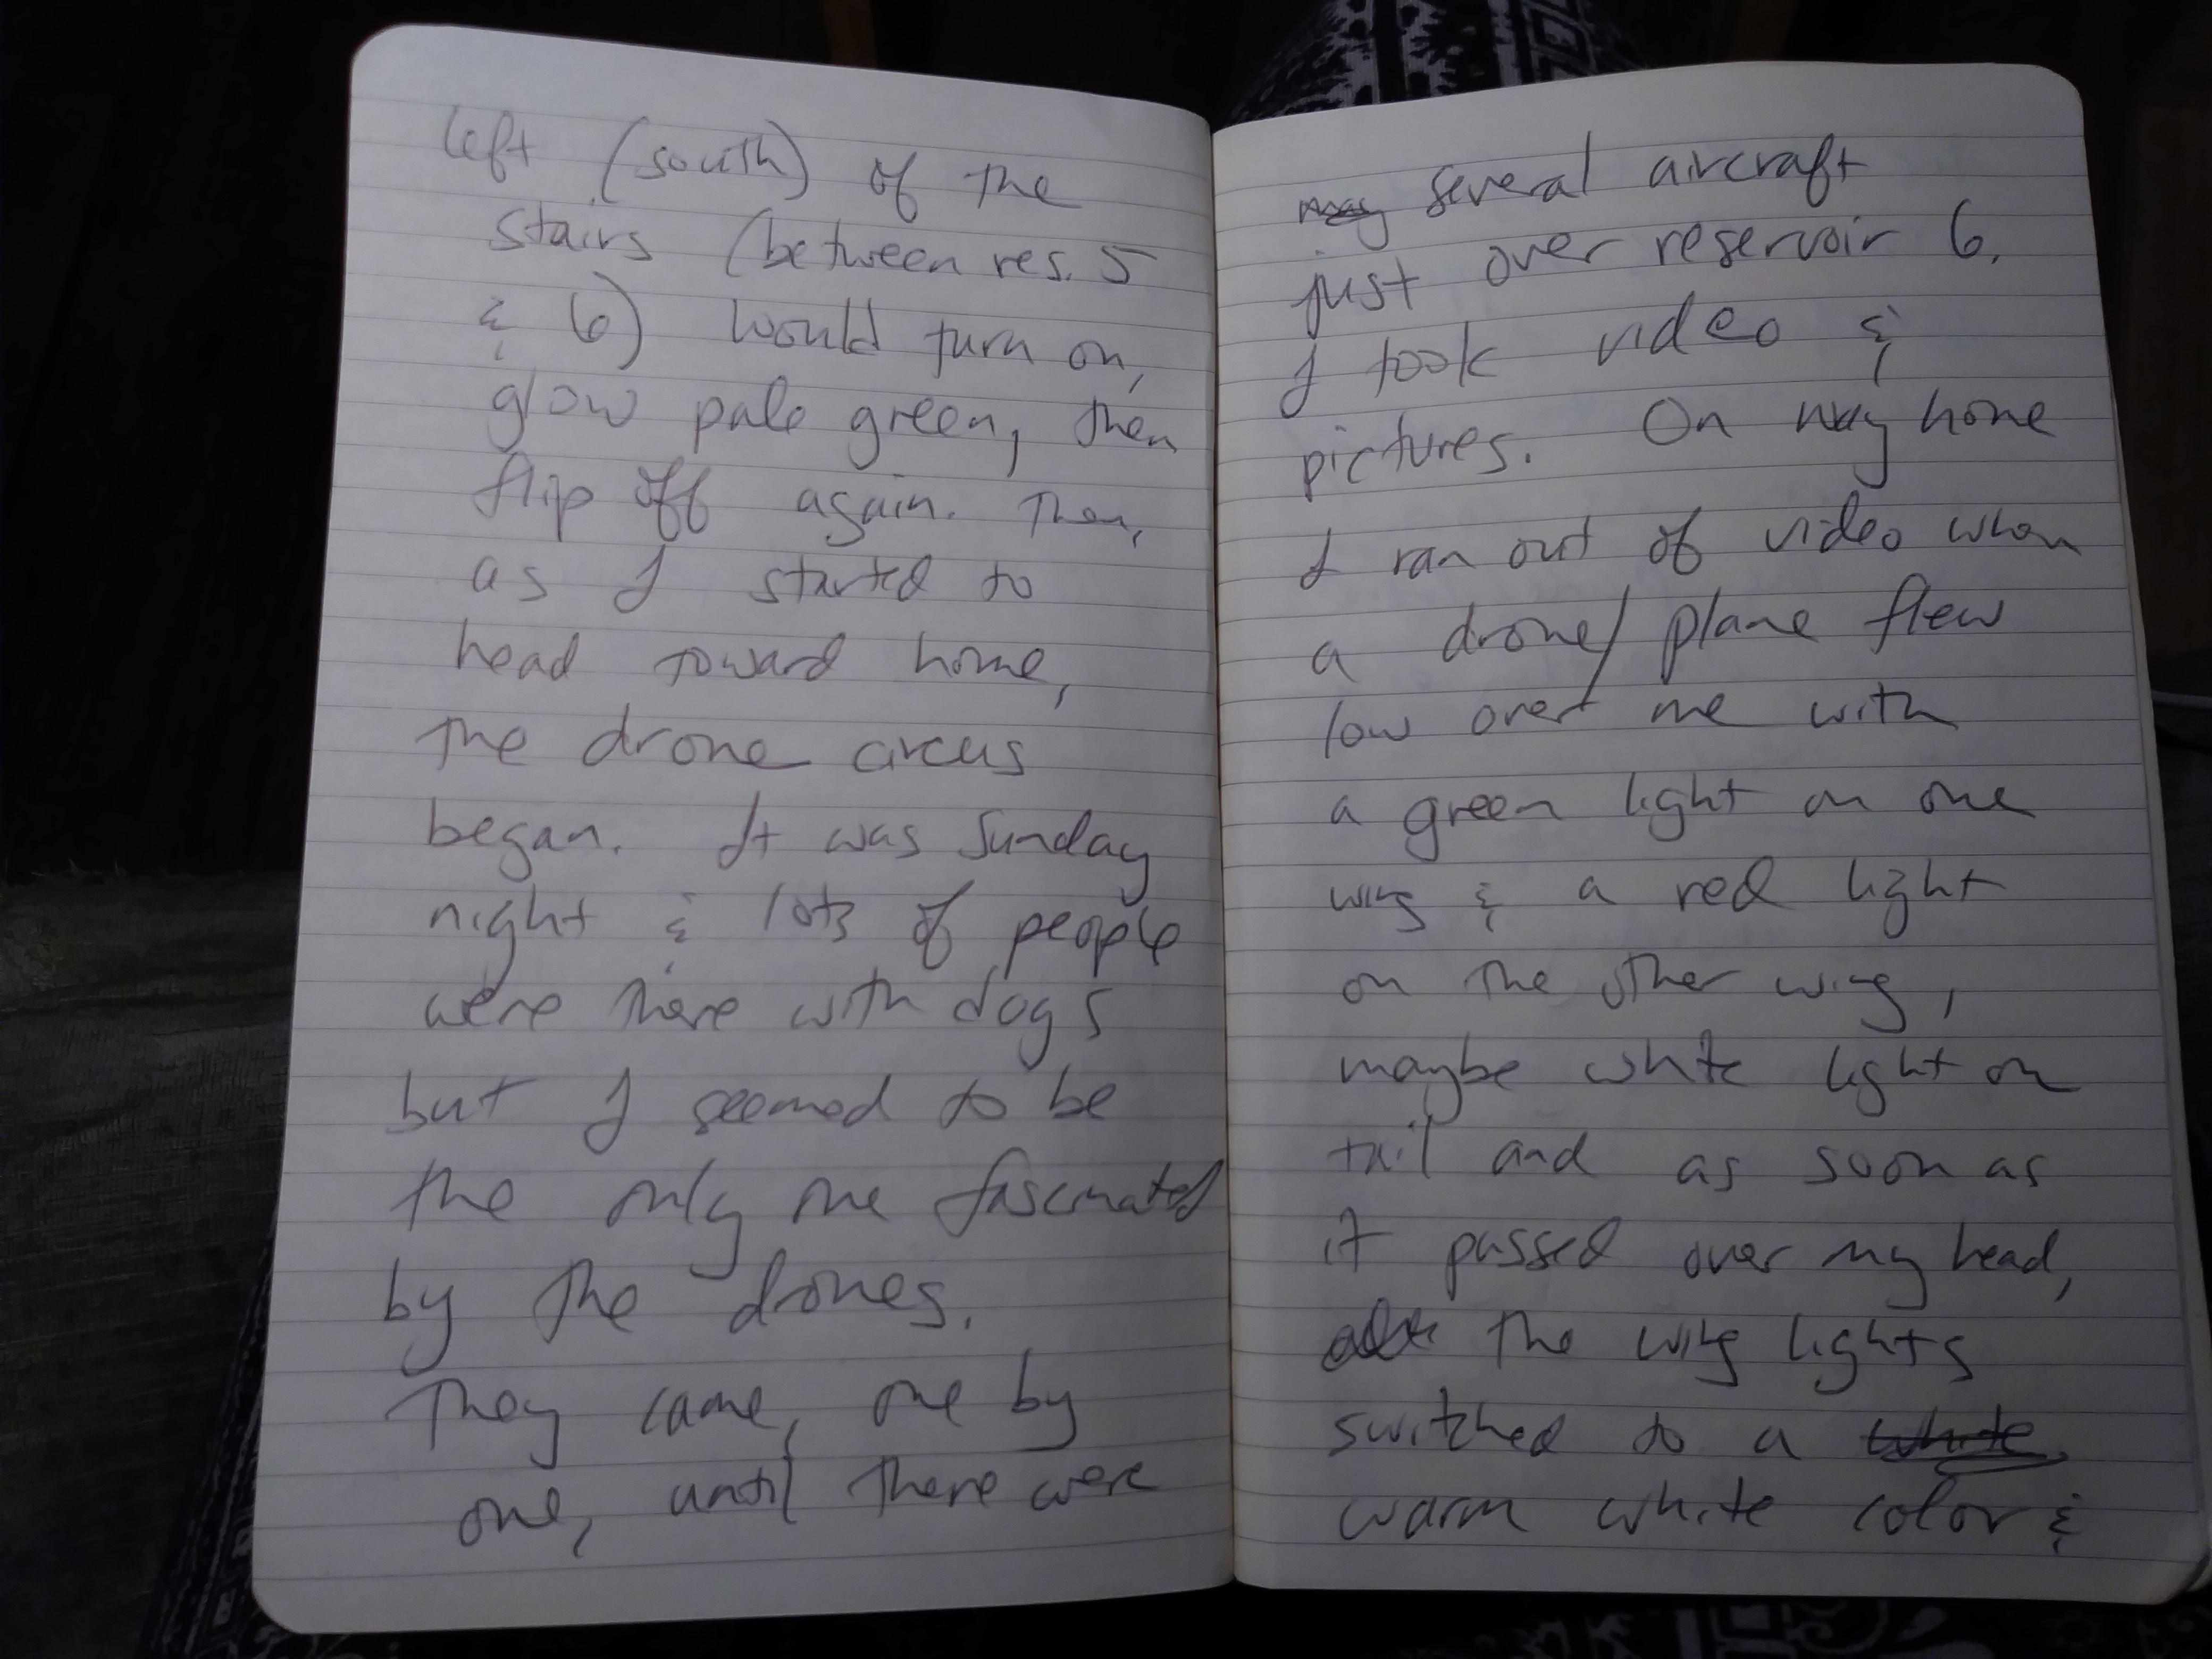 left (south) of the
stairs (between res. 5
& 6) would turn on,
glow pale green, then
flip off again. Then,
as I started to
head toward home,
the drone circus
began. It was Sunday
night & lots of people
were there with dogs
but I seemed to be
the only one fascinated
by the drones.
They came, one by
one, until there were
several aircraft
just over reservoir 6.
I took video &
pictures. On way home
I ran out of video when
a drone/plane flew
low over me with
a green light on one
wing & a red light
on the other wing,
maybe white light on
tail and as soon as
it passed over my head,
the wing lights
switched to a white
warm white color &